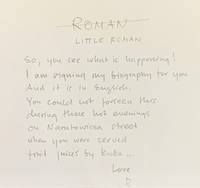 ROMAN
LITTLE ROMAN
So, you see what is happening!
I am signing my biography for you
And it is in English.
You could not forseen this
during those hot evenings
on Narutowicza street
when you were served
fruit juices by Kuba...
Love